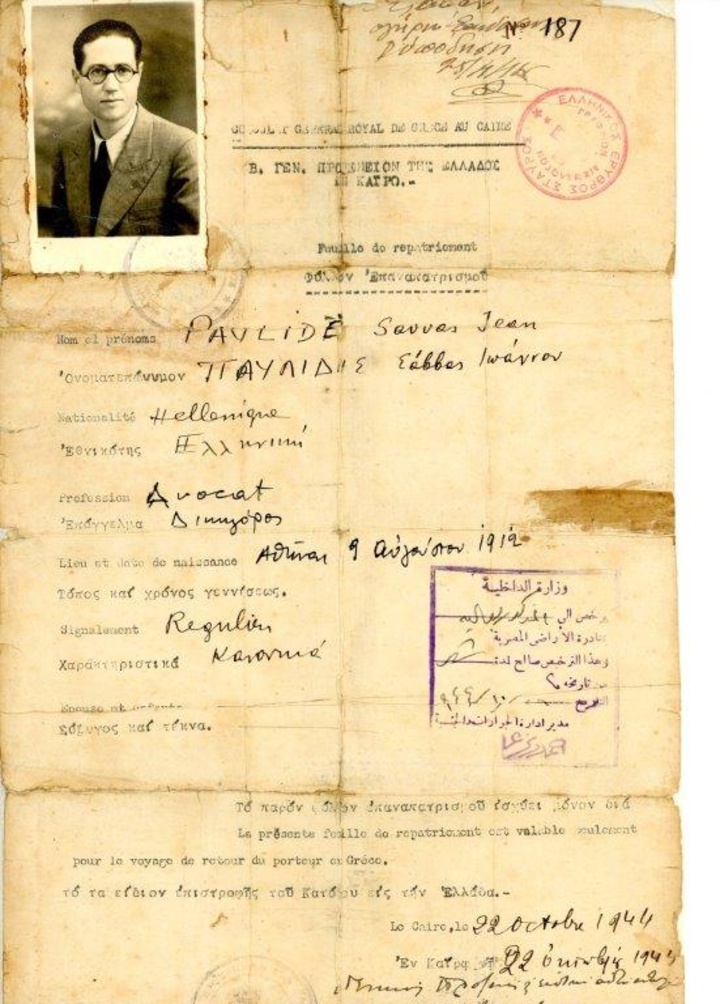 Nº 187
CONSULAT GENERAL ROYAL DE GRECE AU CAIRE
Β. ΓΕΝ. ΠΡΟΞΕΝΕΙΟΝ ΤΗΣ ΕΛΛΑΔΟΣ
ΕΝ ΚΑΙΡΩ.-
ΕΛΛΗΝΙΚΟΣ ΕΡΥΘΡΟΣ ΣΤΑΥΡΟΣ
Feuille de repatriement
Φύλλον Ἐπαναπατρισμοῦ
Nom et prénoms PAVLIDE Savvas Jean
Ὀνοματεπώνυμον ΠΑΥΛΙΔΗΣ Σάββας Ιωάννου
Nationalité Hellenique
Ἐθνικότης Ἑλληνική
Profession Avocat
Ἐπάγγελμα Δικηγόρος
Lieu et date de naissance Αθῆναι 9 Αὐγούστου 1912
Τόπος καί χρόνος γεννήσεως.
Signalement Regulier
Χαρακτηριστικά Κανονικά
Epouse et enfants
Σύζυγος καί τέκνα.
وزارة الداخلية
يرخص الى
مغادرة الأراضى المصرية
وهذا الترخيص صالح لمدة
من تاريخه
التاريخ
مدير ادارة الجوازات والجنسية
Τό παρόν φύλλον ἐπαναπατρισμοῦ ἰσχύει μόνον διά
La présente feuille de repatriement est valable seulement
pour le voyage de retour du porteur en Grèce.
τό ταξείδιον ἐπιστροφῆς τοῦ Κατόχου εἰς τήν Ἑλλάδα.-
Le Caire, le 22 Octobre 1944
Ἐν Καΐρῳ 22 Ὀκτωβρ 1944